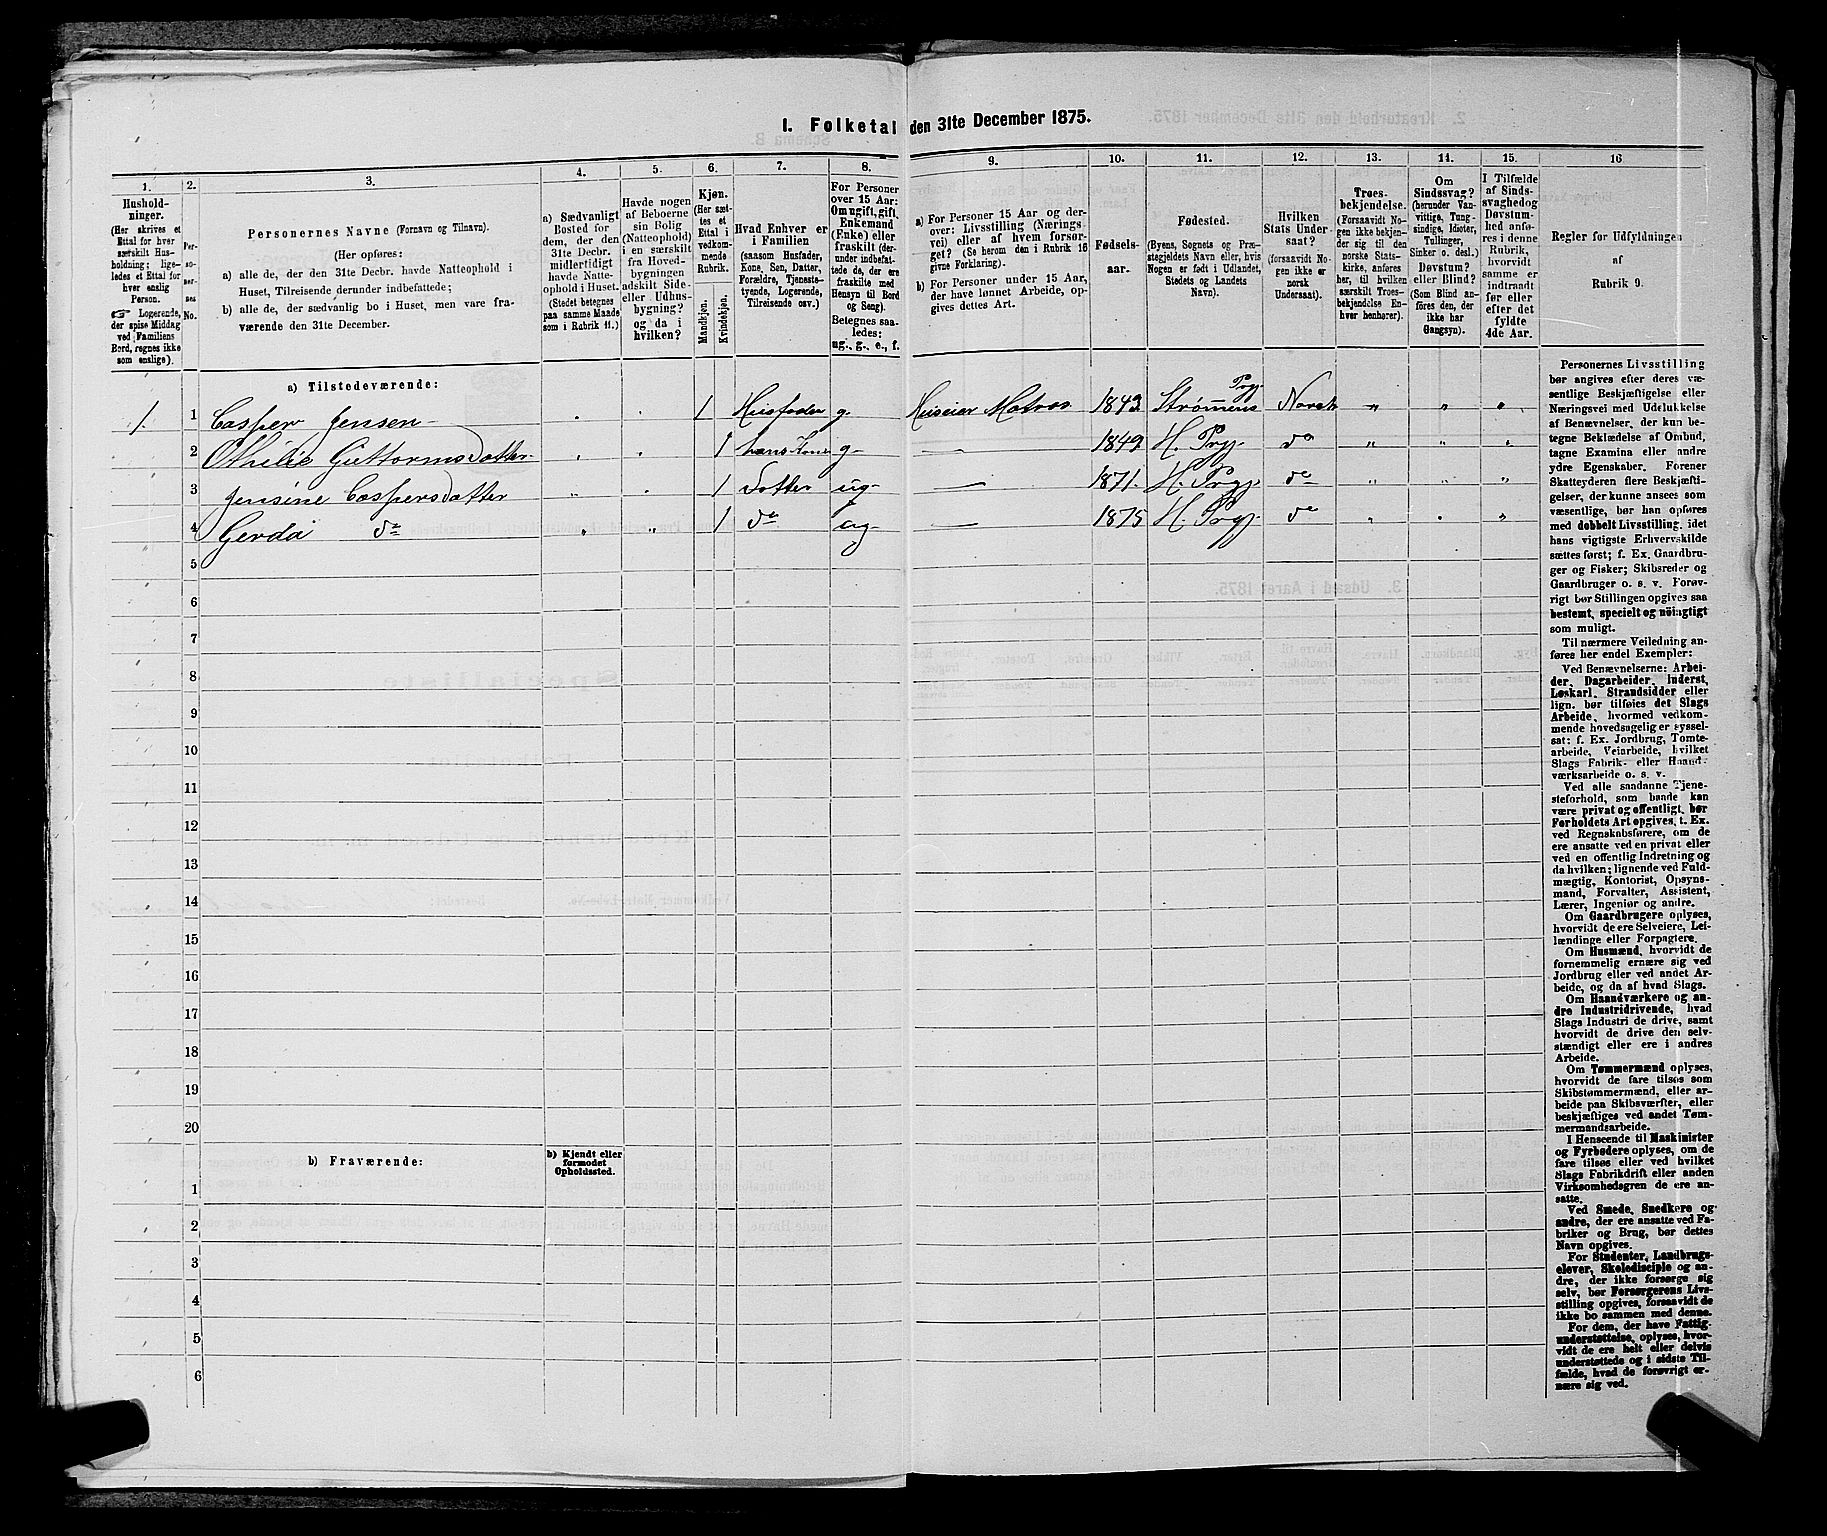 I. Folketal den 31te December 1875.
1. 2. 3. 4. 5. 6. 7. 8. 9. 10. 11. 12. 13. 14. 15. 16
Hushold-
ninger.
(Her skrives et
Ettal for hver
særskilt Hus-
holdning; lige-
ledes et Ettal for
hver enslig
Person.
☞ Logerende,
der spise Middag
ved Familiens
Bord, regnes ikke
som enslige).
Per-
so-
ner-
nes
No.
Personernes Navne (Fornavn og Tilnavn).
(Her opføres:
a) alle de, der den 31te Decbr. havde Natteophold i
Huset, Tilreisende derunder indbefattede;
b) alle de, der sædvanlig bo i Huset, men vare fra-
værende den 31te December.
a) Sædvanligt
Bosted for
dem, der den
31te Decbr.
midlertidigt
havde Natte-
ophold i Huset.
(Stedet betegnes
paa samme Maade
som i Rubrik 11.)
Havde nogen
af Beboerne
sin Bolig
(Natteophold)
i en særskilt
fra Hoved-
bygningen
adskilt Side-
eller Udhus-
bygning?
og da i
hvilken?
Kjøn.
(Her sæt-
tes et
Ettal i
vedkom-
mende
Rubrik.
Mandkjøn.
Kvindekjøn.
Hvad Enhver er
i Familien
(saasom Husfader,
Kone, Søn, Datter,
Forældre, Tjeneste-
tyende, Logerende,
Tilreisende osv.)
For Personer
over 15 Aar:
Om ugift, gift,
Enkemand
(Enke) eller
fraskilt (der-
under indbefat-
tede de, der ere
fraskilte med
Hensyn til Bord
og Seng).
Betegnes saa-
ledes:
ug., g., e., f.
a) For Personer 15 Aar og der-
over: Livsstilling (Nærings-
vei) eller af hvem forsør-
get? (Se herom den i Rubrik 16
givne Forklaring).
b) For Personer under 15 Aar,
der have lønnet Arbeide, op-
gives dettes Art.
Fødsels-
aar.
Fødested.
(Byens, Sognets og Præ-
stegjeldets Navn eller, hvis
Nogen er født i Udlandet,
Stedets og Landets
Navn).
Hvilken
Stats Under-
saat?
(forsaavidt No-
gen ikke er
norsk
Undersaat).
Troes-
bekjendelse.
(Forsaavidt No-
gen ikke bekjen-
der sig til den
norske Stats-
kirke, anføres
her, til hvilken
særskilt Troes-
bekjendelse En-
hver henhører).
Om
Sindssvag?
(herunder Van-
vittige, Tung-
sindige, Idioter,
Tullinger,
Sinker o. desl.)
Døvstum?
eller Blind?
(Som Blind an-
føres den, der
ikke har
Gangsyn).
I Tilfælde
af Sinds-
svaghed og
Døvstum-
hed anfø-
res i denne
Rubrik,
hvorvidt
samme er
indtraadt
før eller
efter det
fyldte
4de Aar.
Regler for Udfyldningen
af
Rubrik 9.
a) Tilstedeværende:
1. 1 Casper Jensen " " 1 Husfader g. Huseier Matros 1843 Strømmens Prgj. Norsk " " "
2 Othilie Guttormsdatter " " 1 hans Kone g. — 1849 H. Prgj. do " " "
3 Jensine Caspersdatter " " 1 Datter ug. — 1871. H. Prgj. do " " "
4 Gerda do " " 1 do ug. — 1875 H. Prgj. do " " "
5
6
7
8
9
10
11
12
13
14
15
16
17
18
19
20
b) Fraværende:
b) Kjendt eller
formodet
Opholdssted.
1
2
3
4
5
6
Personernes Livsstilling
bør angives efter deres væ-
sentlige Beskjæftigelse eller
Næringsvei med Udelukkelse
af Benævnelser, der kun be-
tegne Beklædelse af Ombud,
tagne Examina eller andre
ydre Egenskaber. Forener
Skatteyderen flere Beskjæfti-
gelser, der kunne ansees som
væsentlige, bør han opføres
med dobbelt Livsstilling, idet
hans vigtigste Erhvervskilde
sættes først; f. Ex. Gaardbru-
ger og Fisker; Skibsreder og
Gaardbruger o. s. v. Forøv-
rigt bør Stillingen opgives saa
bestemt, specielt og nøiagtigt
som muligt.
Til nærmere Veiledning an-
føres her endel Exempler:
Ved Benævnelserne: Arbei-
der, Dagarbeider, Inderst,
Løskarl, Strandsidder eller
lign. bør tilføies det Slags
Arbeide, hvormed vedkom-
mende hovedsagelig er syssel-
sat; f. Ex. Jordbrug, Tomte-
arbeide, Veiarbeide, hvilket
Slags Fabrik- eller Haand-
værksarbeide o. s. v.
Ved alle saadanne Tjene-
steforhold, som baade kan
være privat og offentligt, bør
Forholdets Art opgives, t. Ex.
ved Regnskabsførere, om de
ere ansatte ved en privat eller
ved en offentlig Indretning og
da hvilken; lignende ved Fuld-
mægtig, Kontorist, Opsyns-
mand, Forvalter, Assistent,
Lærer, Ingeniør og andre.
Om Gaardbrugere oplyses,
hvorvidt de ere Selveiere, Lei-
lændinge eller Forpagtere.
Om Husmænd, hvorvidt de
fornemmelig ernære sig ved
Jordbrug eller ved andet Ar-
beide, og da af hvad Slags.
Om Haandværkere og an-
dre Industridrivende, hvad
Slags Industri de drive, samt
hvorvidt de drive den selv-
stændigt eller ere i andres
Arbeide.
Om Tømmermænd oplyses,
hvorvidt de fare tilsøs som
Skibstømmermænd, eller ar-
beide paa Skibsværfter, eller
beskjæftiges ved andet Tøm-
mermandsarbeide.
I Henseende til Maskinister
og Fyrbødere oplyses, om de
fare tilsøs eller ved hvilket
Slags Fabrikdrift eller anden
Virksomhedsgren de ere an-
satte.
Ved Smede, Snedkere og
andre, der ere ansatte ved Fa-
briker og Brug, bør dettes
Navn opgives.
For Studenter, Landbrugs-
elever, Skoledisciple og an-
dre, der ikke forsørge sig
selv, bør Forsørgerens Livs-
stilling opgives, forsaavidt de
ikke bo sammen med denne.
For dem, der have Fattig-
understøttelse, oplyses, hvor-
vidt de ere helt eller delvis
understøttede og i sidste Til-
fælde, hvad de forøvrigt er-
nære sig ved.